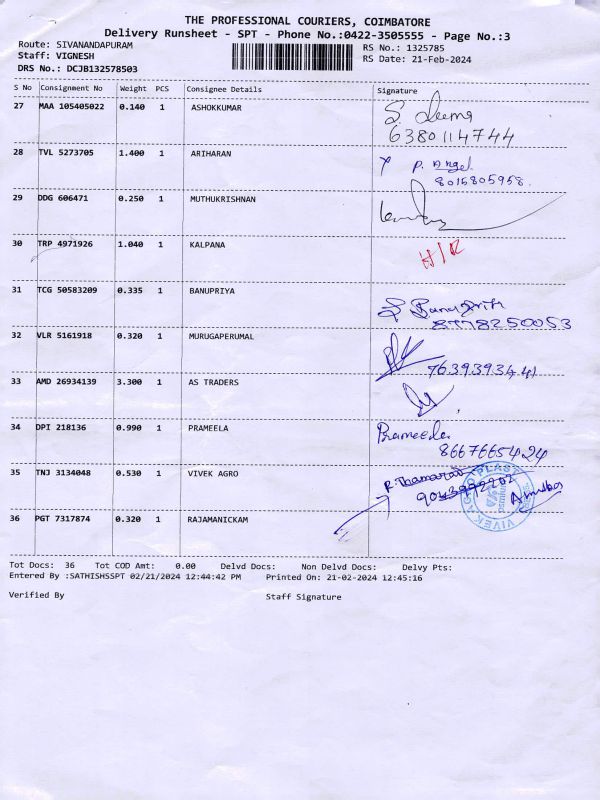 THE PROFESSIONAL COURIERS, COIMBATORE
Delivery Runsheet - SPT - Phone No.:0422-3505555 - Page No.:3
Route: SIVANANDAPURAM RS No.: 1325785
Staff: VIGNESH RS Date: 21-Feb-2024
DRS No.: DCJB132578503
S No Consignment No Weight PCS Consignee Details Signature
27 MAA 105405022 0.140 1 ASHOKKUMAR
6380114744
28 TVL 5273705 1.400 1 ARIHARAN P. Angel
8015805958.
29 DDG 606471 0.250 1 MUTHUKRISHNAN
30 TRP 4971926 1.040 1 KALPANA H/R
31 TCG 50583209 0.335 1 BANUPRIYA
8778250053
32 VLR 5161918 0.320 1 MURUGAPERUMAL
7639393441
33 AMD 26934139 3.300 1 AS TRADERS
34 DPI 218136 0.990 1 PRAMEELA Prameela
8667665424
35 TNJ 3134048 0.530 1 VIVEK AGRO R. Thamarai
VIVEK AGRO PLAST
36 PGT 7317874 0.320 1 RAJAMANICKAM
Tot Docs: 36 Tot COD Amt: 0.00 Delvd Docs: Non Delvd Docs: Delvy Pts:
Entered By :SATHISHSSPT 02/21/2024 12:44:42 PM Printed On: 21-02-2024 12:45:16
Verified By Staff Signature